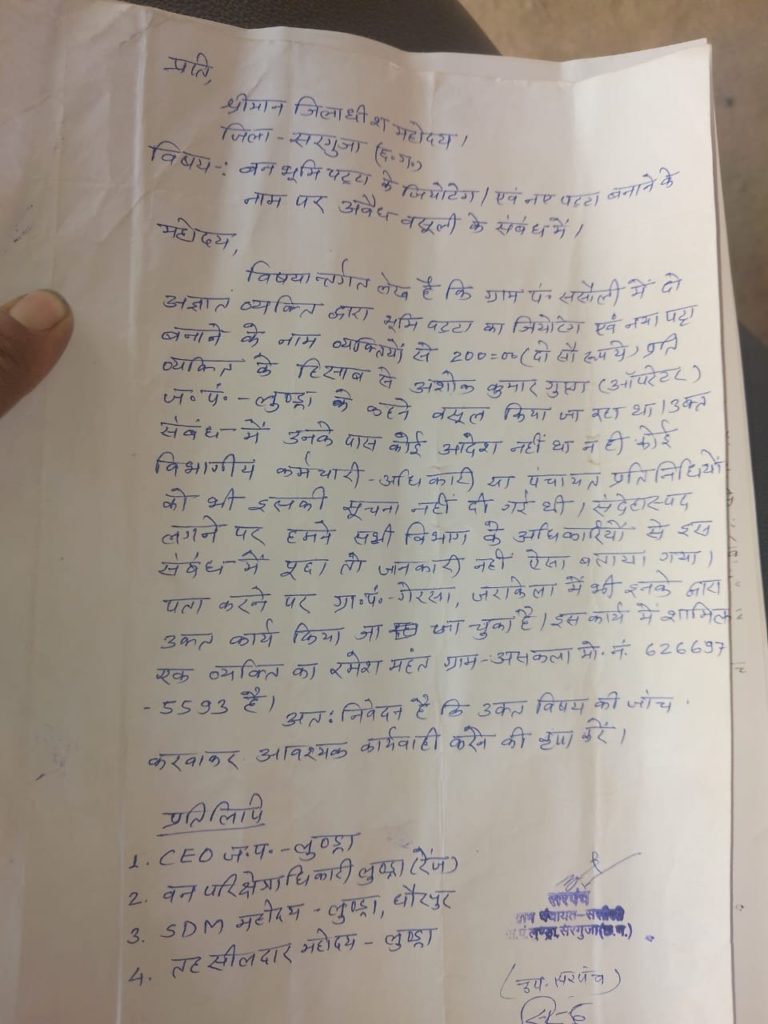 प्रति,
श्रीमान जिलाधीश महोदय।
जिला - सरगुजा (छ.ग.)
विषय:- वन भूमि पट्टा के जियोटेग। एवं नए पट्टा बनाने के
नाम पर अवैध वसूली के संबंध में।
महोदय,
विषयान्तर्गत लेख है कि ग्राम पं. ससौली में दो
अज्ञात व्यक्ति द्वारा भूमि पट्टा का जियोटेग एवं नया पट्टा
बनाने के नाम व्यक्तियों से 200=00 (दो सौ रूपये) प्रति
व्यक्ति के हिसाब से अशोक कुमार गुप्ता (ऑपरेटर)
ज.पं. - लुण्ड्रा के कहने वसूल किया जा रहा था। उक्त
संबंध में उनके पास कोई आदेश नहीं था न ही कोई
विभागीय कर्मचारी - अधिकारी या पंचायत प्रतिनिधियों
को भी इसकी सूचना नहीं दी गई थी। संदेहास्पद
लगने पर हमने सभी विभाग के अधिकारियों से इस
संबंध में पूछा तो जानकारी नहीं ऐसा बताया गया।
पता करने पर ग्रा.पं.- गेरसा, जराकेला में भी इनके द्वारा
उक्त कार्य किया जा चुका है। इस कार्य में शामिल
एक व्यक्ति का रमेश महंत ग्राम - असकला मो. नं. 626697
- 5593 है।
अत: निवेदन है कि उक्त विषय की जांच
करवाकर आवश्यक कार्यवाही करने की कृपा करें।
प्रतिलिपि
1. CEO ज.पं. - लुण्ड्रा
2. वन परिक्षेत्राधिकारी लुण्ड्रा (रेंज)
3. SDM महोदय - लुण्ड्रा, धौरपुर
4. तहसीलदार महोदय - लुण्ड्रा
सरपंच
ग्राम पंचायत-ससौली
ज.पं.लुण्ड्रा, सरगुजा (छ.ग.)
(उप. सरपंच)